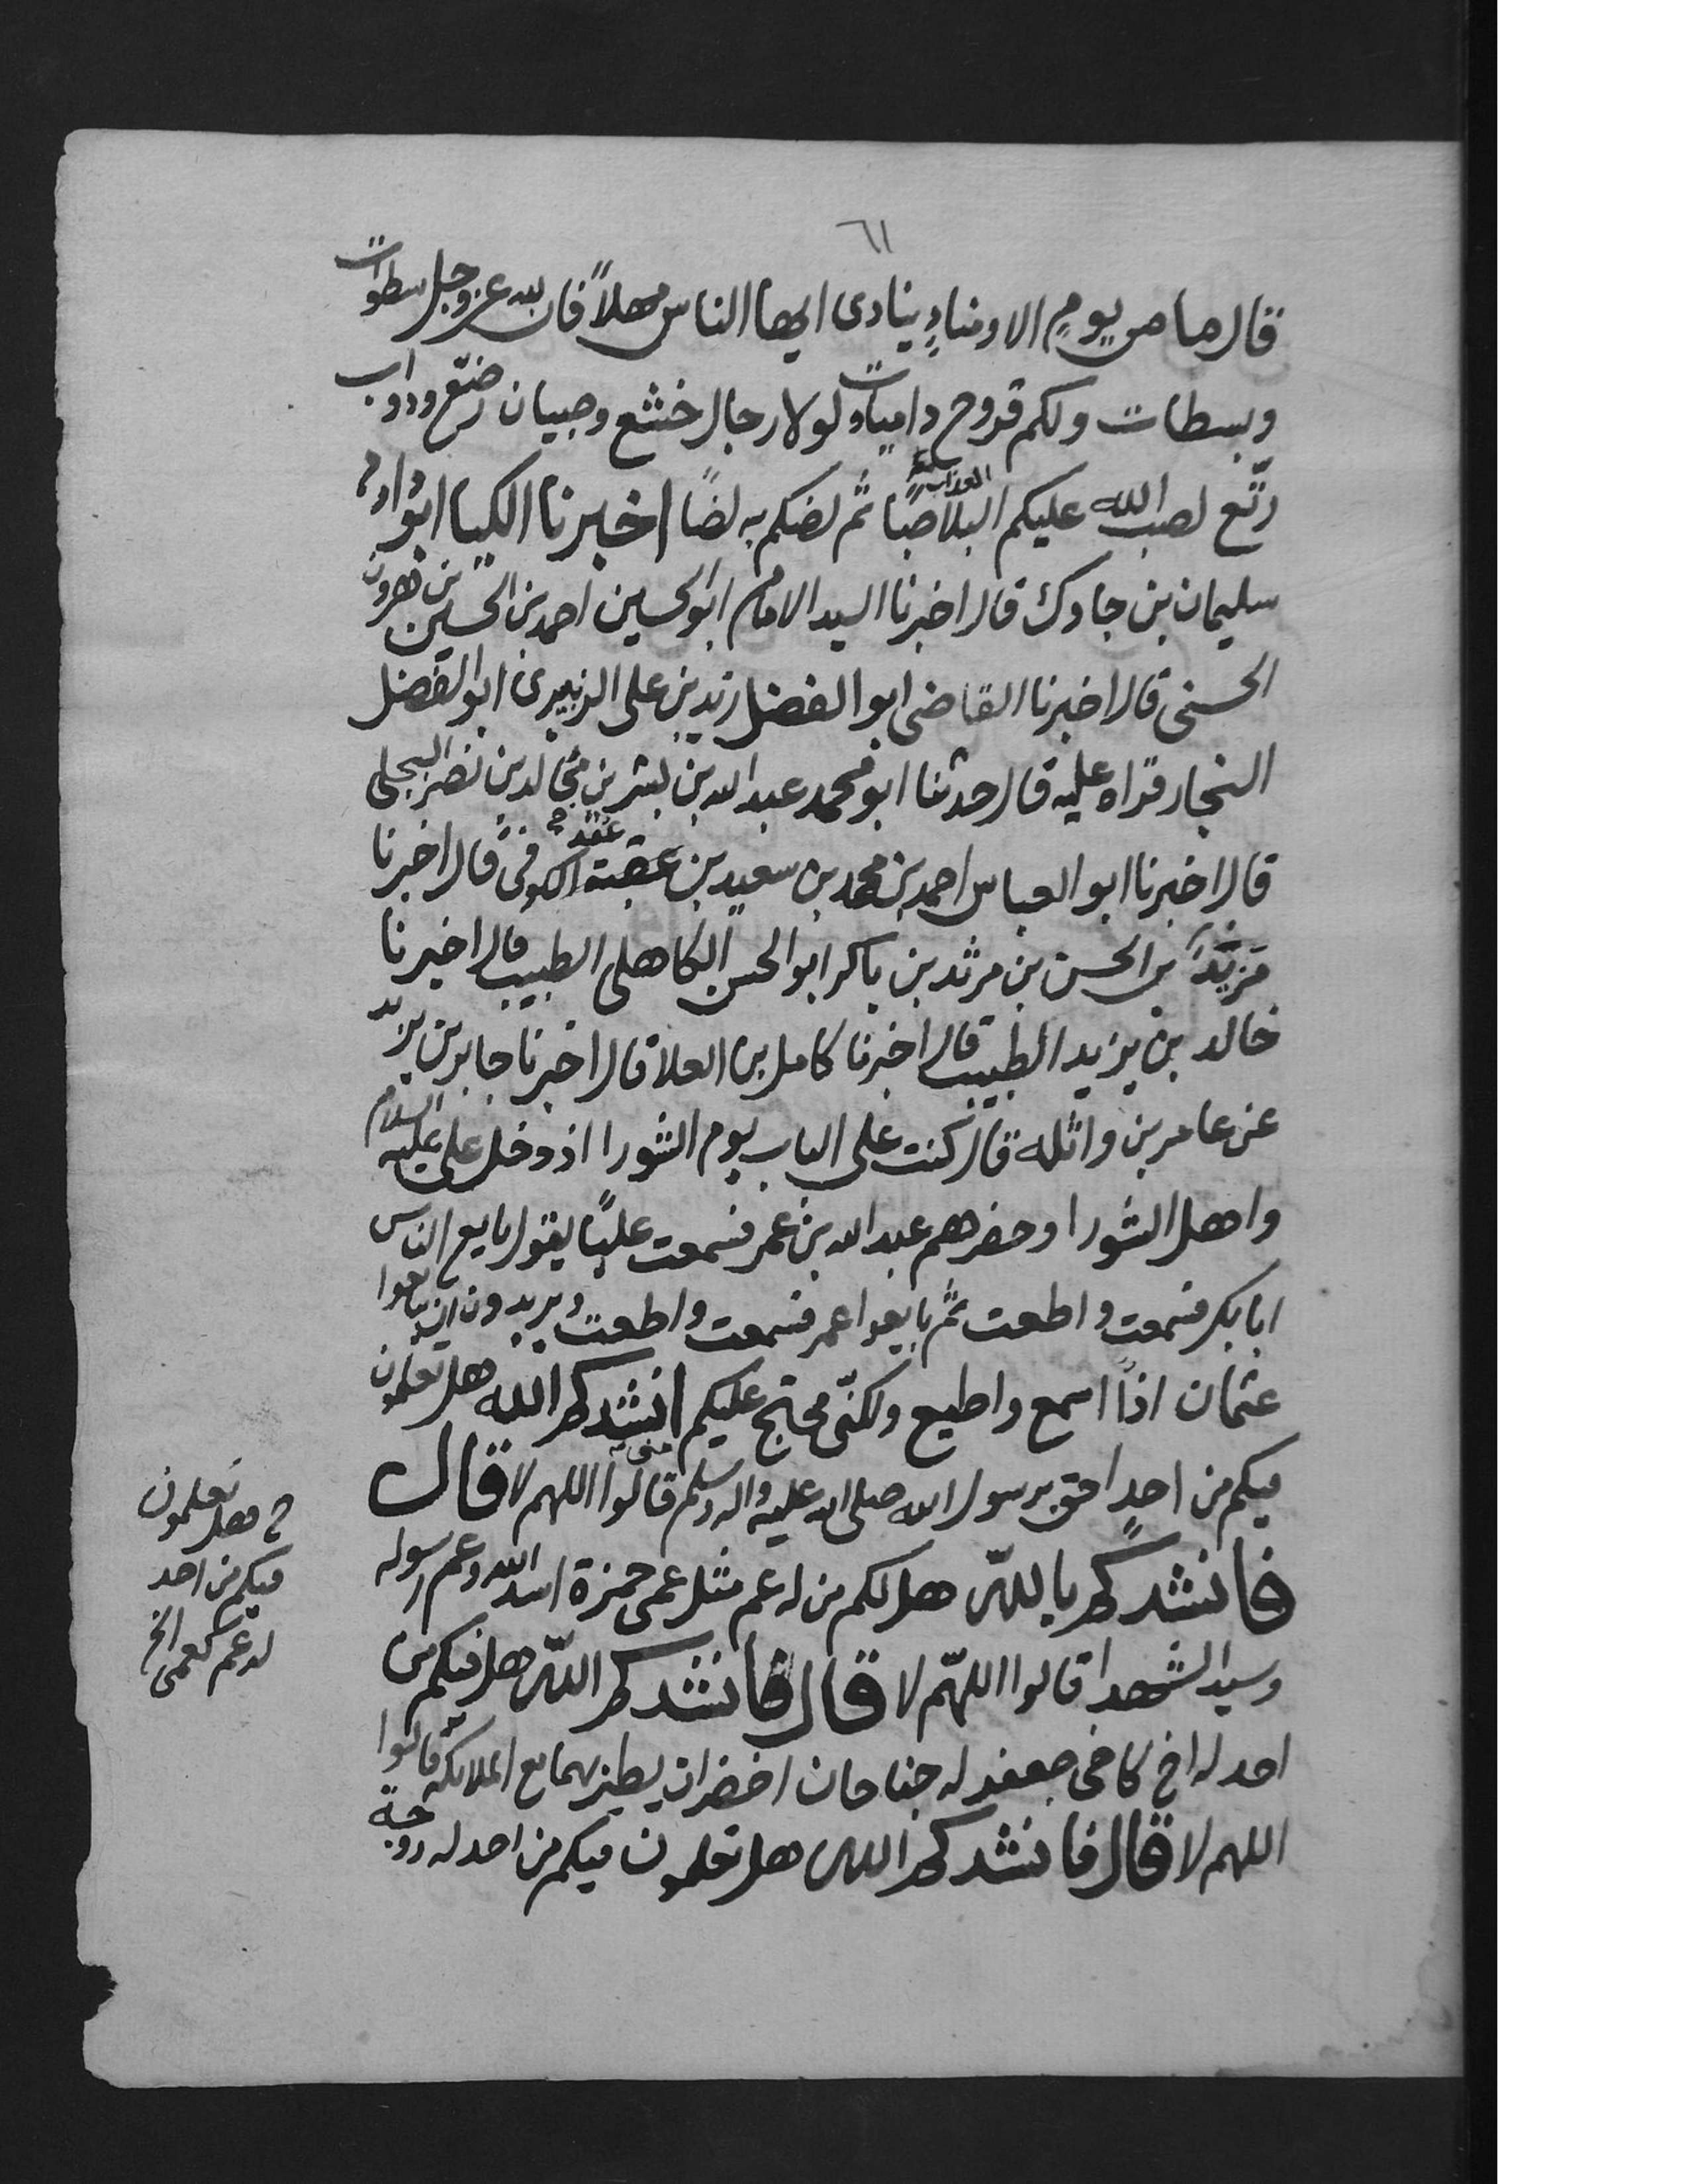 ٦١
قال ما من يومٍ الا ومنادٍ ينادى ايها الناس مهلاً فان لله عز وجل سطوات
وبسطات ولكم قروح داميات ولولا رجال خشع وصبيان رضع ودواب
رتّع لصب الله عليكم البلا صبا ثم لضكم به لضًا اخبرنا الكيا ابو
العذاب
سليمان بن جاوك قال اخبرنا السيد الامام ابو الحسين احمد بن الحسين بن هرون
الحسنى قال اخبرنا القاضى ابو الفضل زيد بن على الزبيرى ابو الفضل
النجار قراه عليه قال حدثنا ابو محمد عبد الله بن بشر بن مجالد بن نصر البجلى
قال اخبرنا ابو العباس احمد بن محمد بن سعيد بن عقبة الكوفى قال اخبرنا
عقده
مزيد بن الحسن بن مرثد بن باكر ابو الحسن الكاهلى الطبيب قال اخبرنا
خالد بن يزيد الطبيب قال اخبرنا كامل بن العلا قال اخبرنا جابر بن يزيد
عن عامر بن واثله قال كنت على الباب يوم الشورا اذ دخل على عليه السلام
واهل الشورا وحضرهم عبد الله بن عمر فسمعت عليًا يقول بايع الناس
ابا بكر فسمعت واطعت ثم بايعوا عمر فسمعت واطعت ويريدون ان يبايعوا
عثمان اذًا اسمع واطيع ولكنّى محتج عليكم انشدكم الله هل تعلمون
فيكم من احدٍ احق برسول الله صلى الله عليه واله وسلم قالوا اللهم لا قال
منى
فانشدكم بالله هل لكم من له عم مثل عمى حمزة اسد الله وعم رسوله
وسيد الشهدا قالوا اللهّم لا قال فانشدكم الله هل فيكم من
احد له اخ كاخى جعفر له جناحان اخضران يطير بهما مع الملائكة قالوا
اللهم لا قال فانشدكم الله هل تعلمون فيكم من احد له زوجة
هل تعلمون
فيكم من احد
له عم كعمى الخ